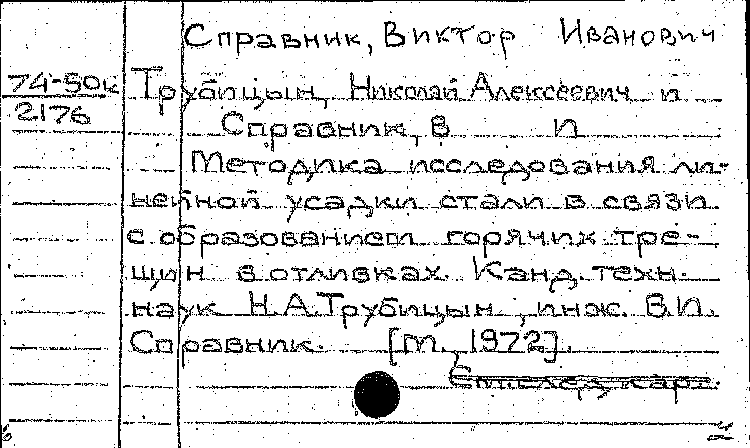 Справник, Виктор Иванович
74-50к
2176
Трубицын, Николай Алексеевич и
Справник, В И
Методика исследования ли-
нейной усадки стали в связи
с образованием горячих тре-
щин в отливках. Канд. техн.
наук Н.А. Трубицын, инж. В.И.
Справник. [М., 1972].
См. след. карт.